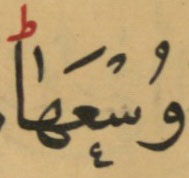 وُسْعَهَاؕ